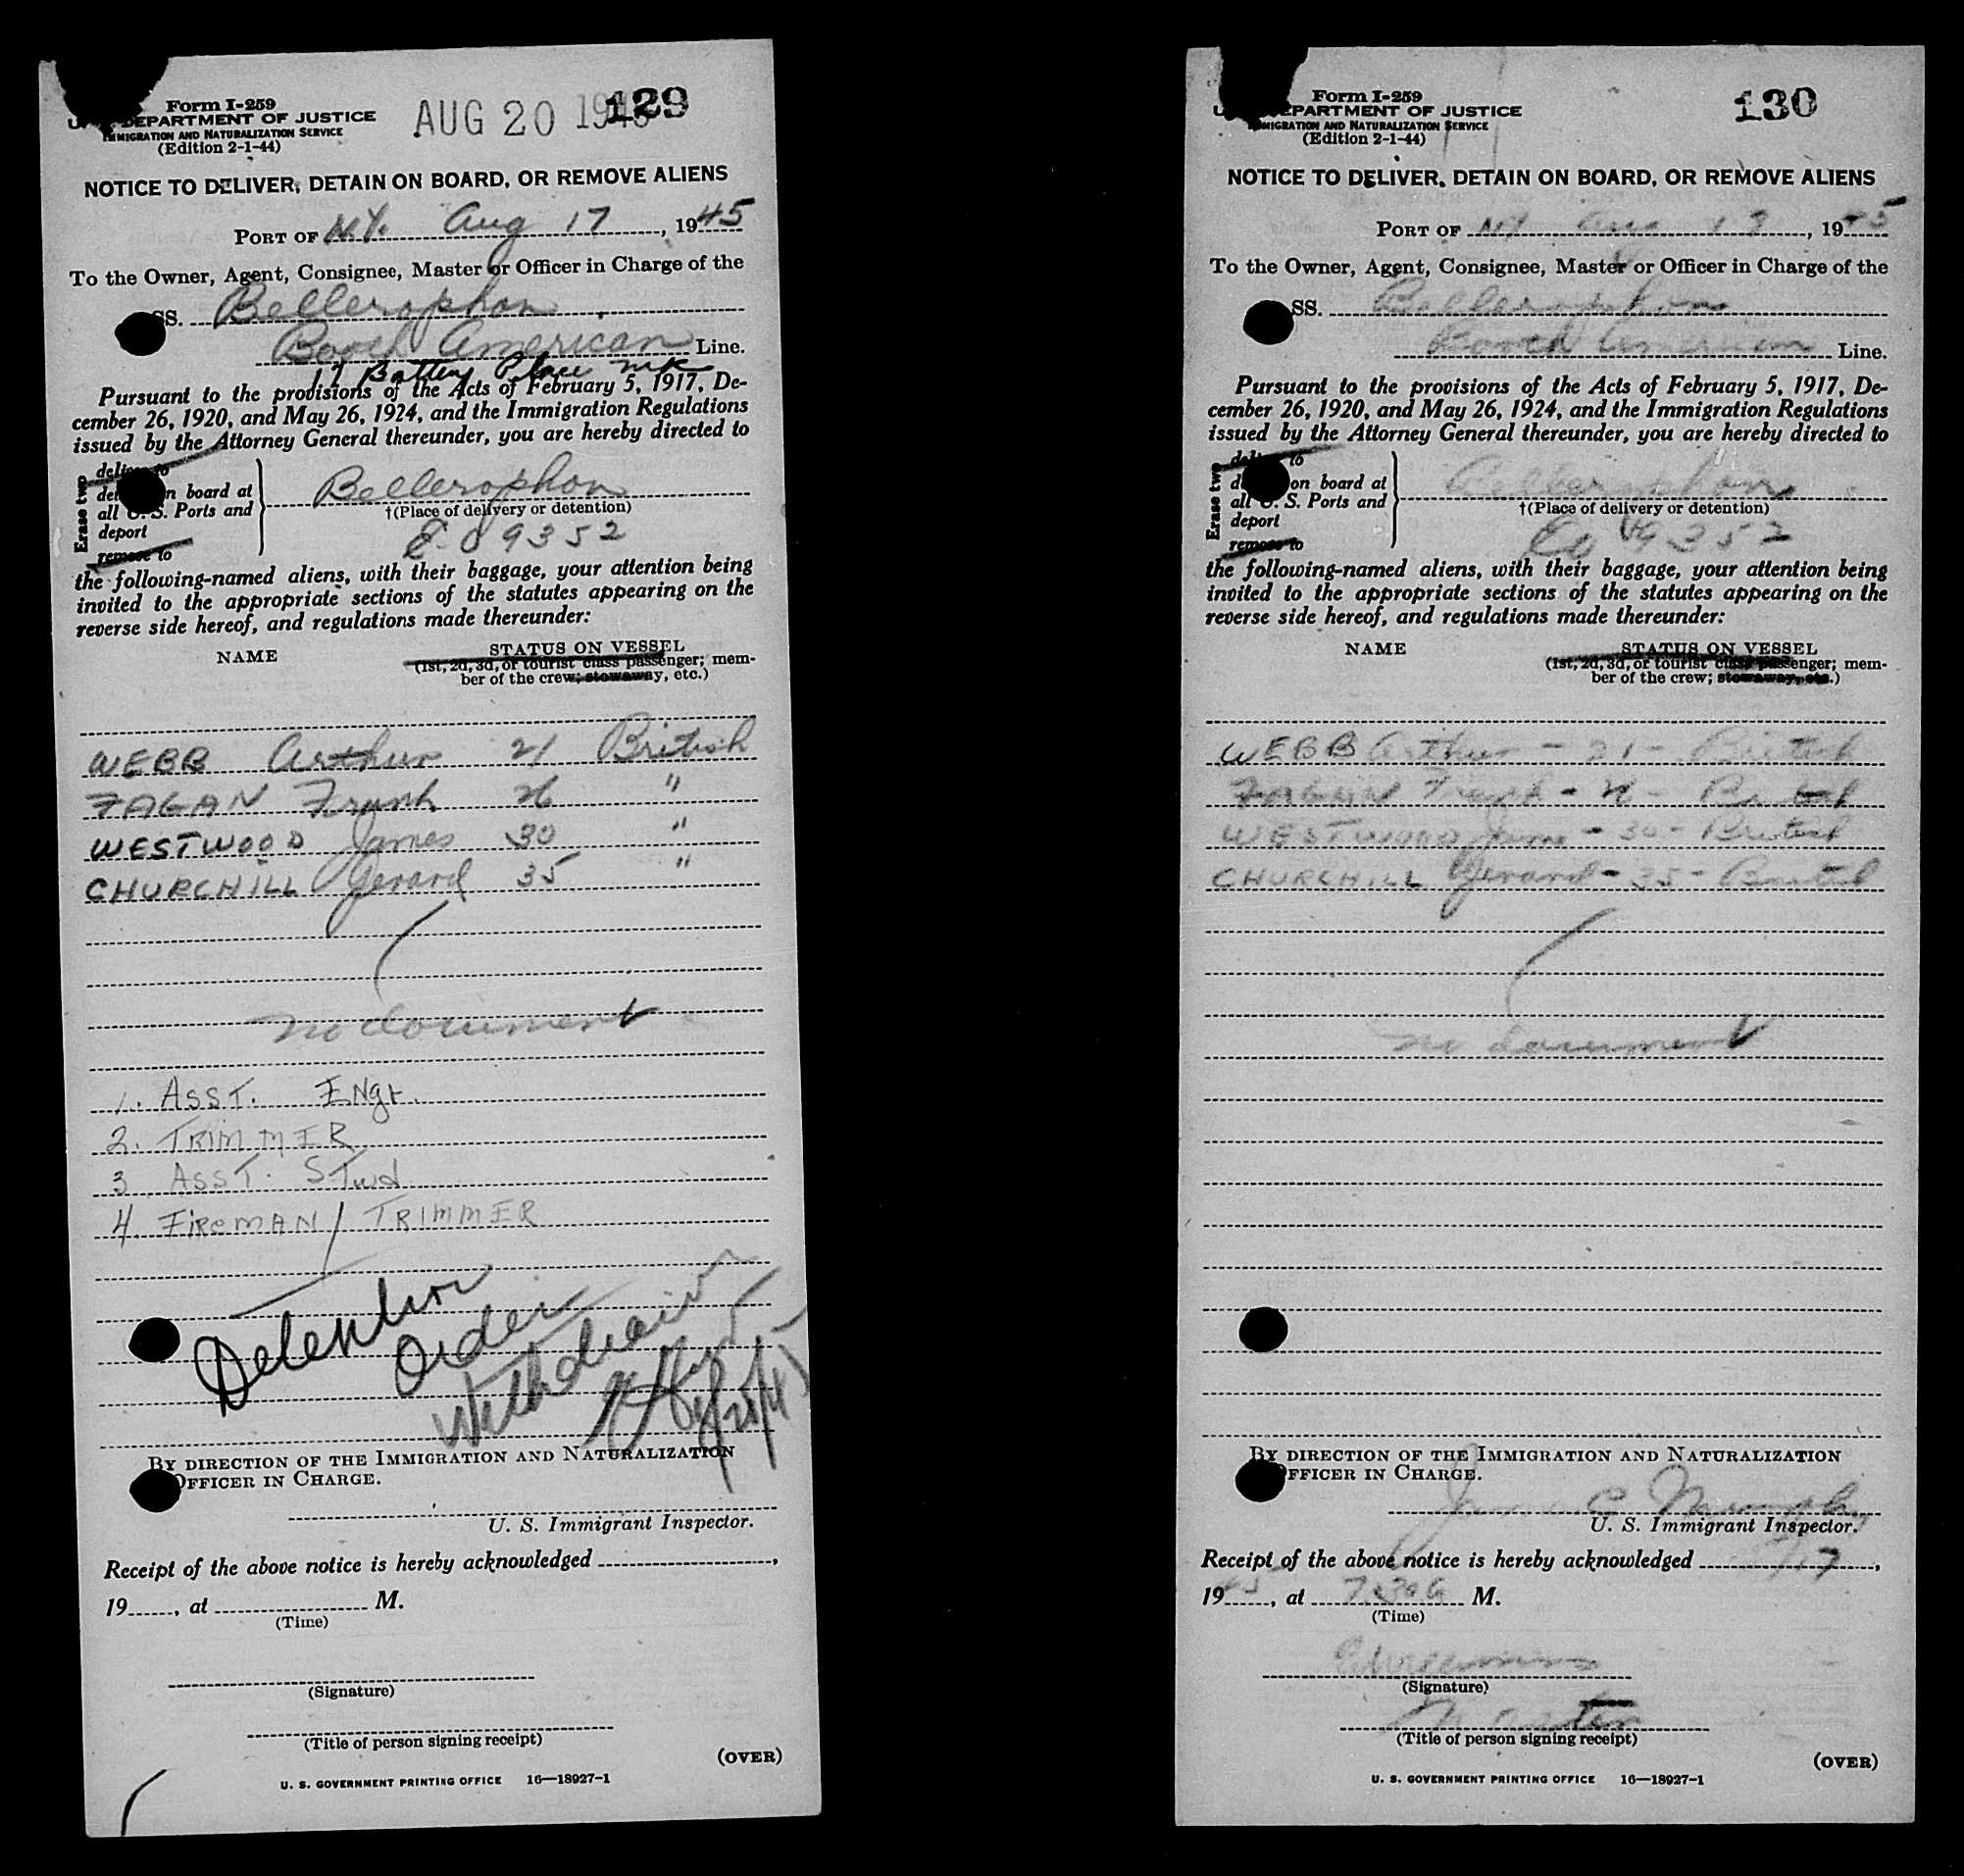 Form I-259
AUG 20 19
129
DEPARTMENT OF JUSTICE
IMMIGRATION AND NATURALIZATION SERVICE
(Edition 2-1-44)
NOTICE TO DELIVER, DETAIN ON BOARD, OR REMOVE ALIENS
PORT OF N.Y. Aug 17, 1945
To the Owner, Agent, Consignee, Master or Officer in Charge of the
SS. Bellerophon
Booth American Line.
17 Battery Place
Pursuant to the provisions of the Acts of February 5, 1917, De-
cember 26, 1920, and May 26, 1924, and the Immigration Regulations
issued by the Attorney General thereunder, you are hereby directed to
Erase two
deliver to
on board at
all U.S. Ports and
deport
remove to
Bellerophon
†(Place of delivery or detention)
EO 9352
the following-named aliens, with their baggage, your attention being
invited to the appropriate sections of the statutes appearing on the
reverse side hereof, and regulations made thereunder:
NAME
STATUS ON VESSEL
(1st, 2d, 3d, or tourist class passenger; mem-
ber of the crew; stowaway, etc.)
WEBB Arthur 21 British
FAGAN Frank 26 "
WESTWOOD James 30 "
CHURCHILL Gerard 35 "
no document
1. ASST. ENgr.
2. TRIMMER
3 ASST. STwd
4. FIREMAN / TRIMMER
Detention
Order
Withdrawn
BY DIRECTION OF THE IMMIGRATION AND NATURALIZATION
OFFICER IN CHARGE.
U. S. Immigrant Inspector.
Receipt of the above notice is hereby acknowledged ,
19 , at M.
(Time)
(Signature)
(Title of person signing receipt)
(OVER)
U. S. GOVERNMENT PRINTING OFFICE 16—18927-1
Form I-259
130
DEPARTMENT OF JUSTICE
IMMIGRATION AND NATURALIZATION SERVICE
(Edition 2-1-44)
NOTICE TO DELIVER, DETAIN ON BOARD, OR REMOVE ALIENS
PORT OF NY Aug 17, 1945
To the Owner, Agent, Consignee, Master or Officer in Charge of the
SS. Bellerophon
Booth American Line.
Pursuant to the provisions of the Acts of February 5, 1917, De-
cember 26, 1920, and May 26, 1924, and the Immigration Regulations
issued by the Attorney General thereunder, you are hereby directed to
Erase two
deliver to
on board at
all U. S. Ports and
deport
remove to
Bellerophon
†(Place of delivery or detention)
EO 9352
the following-named aliens, with their baggage, your attention being
invited to the appropriate sections of the statutes appearing on the
reverse side hereof, and regulations made thereunder:
NAME
STATUS ON VESSEL
(1st, 2d, 3d, or tourist class passenger; mem-
ber of the crew; stowaway, etc.)
WEBB Arthur - 21 - British
FAGAN Frank - 26 - British
WESTWOOD James - 30 - British
CHURCHILL Gerard - 35 - British
no document
BY DIRECTION OF THE IMMIGRATION AND NATURALIZATION
OFFICER IN CHARGE.
U. S. Immigrant Inspector.
Receipt of the above notice is hereby acknowledged ,
1945, at 7.30 M.
(Time)
(Signature)
Master
(Title of person signing receipt)
(OVER)
U. S. GOVERNMENT PRINTING OFFICE 16—18927-1